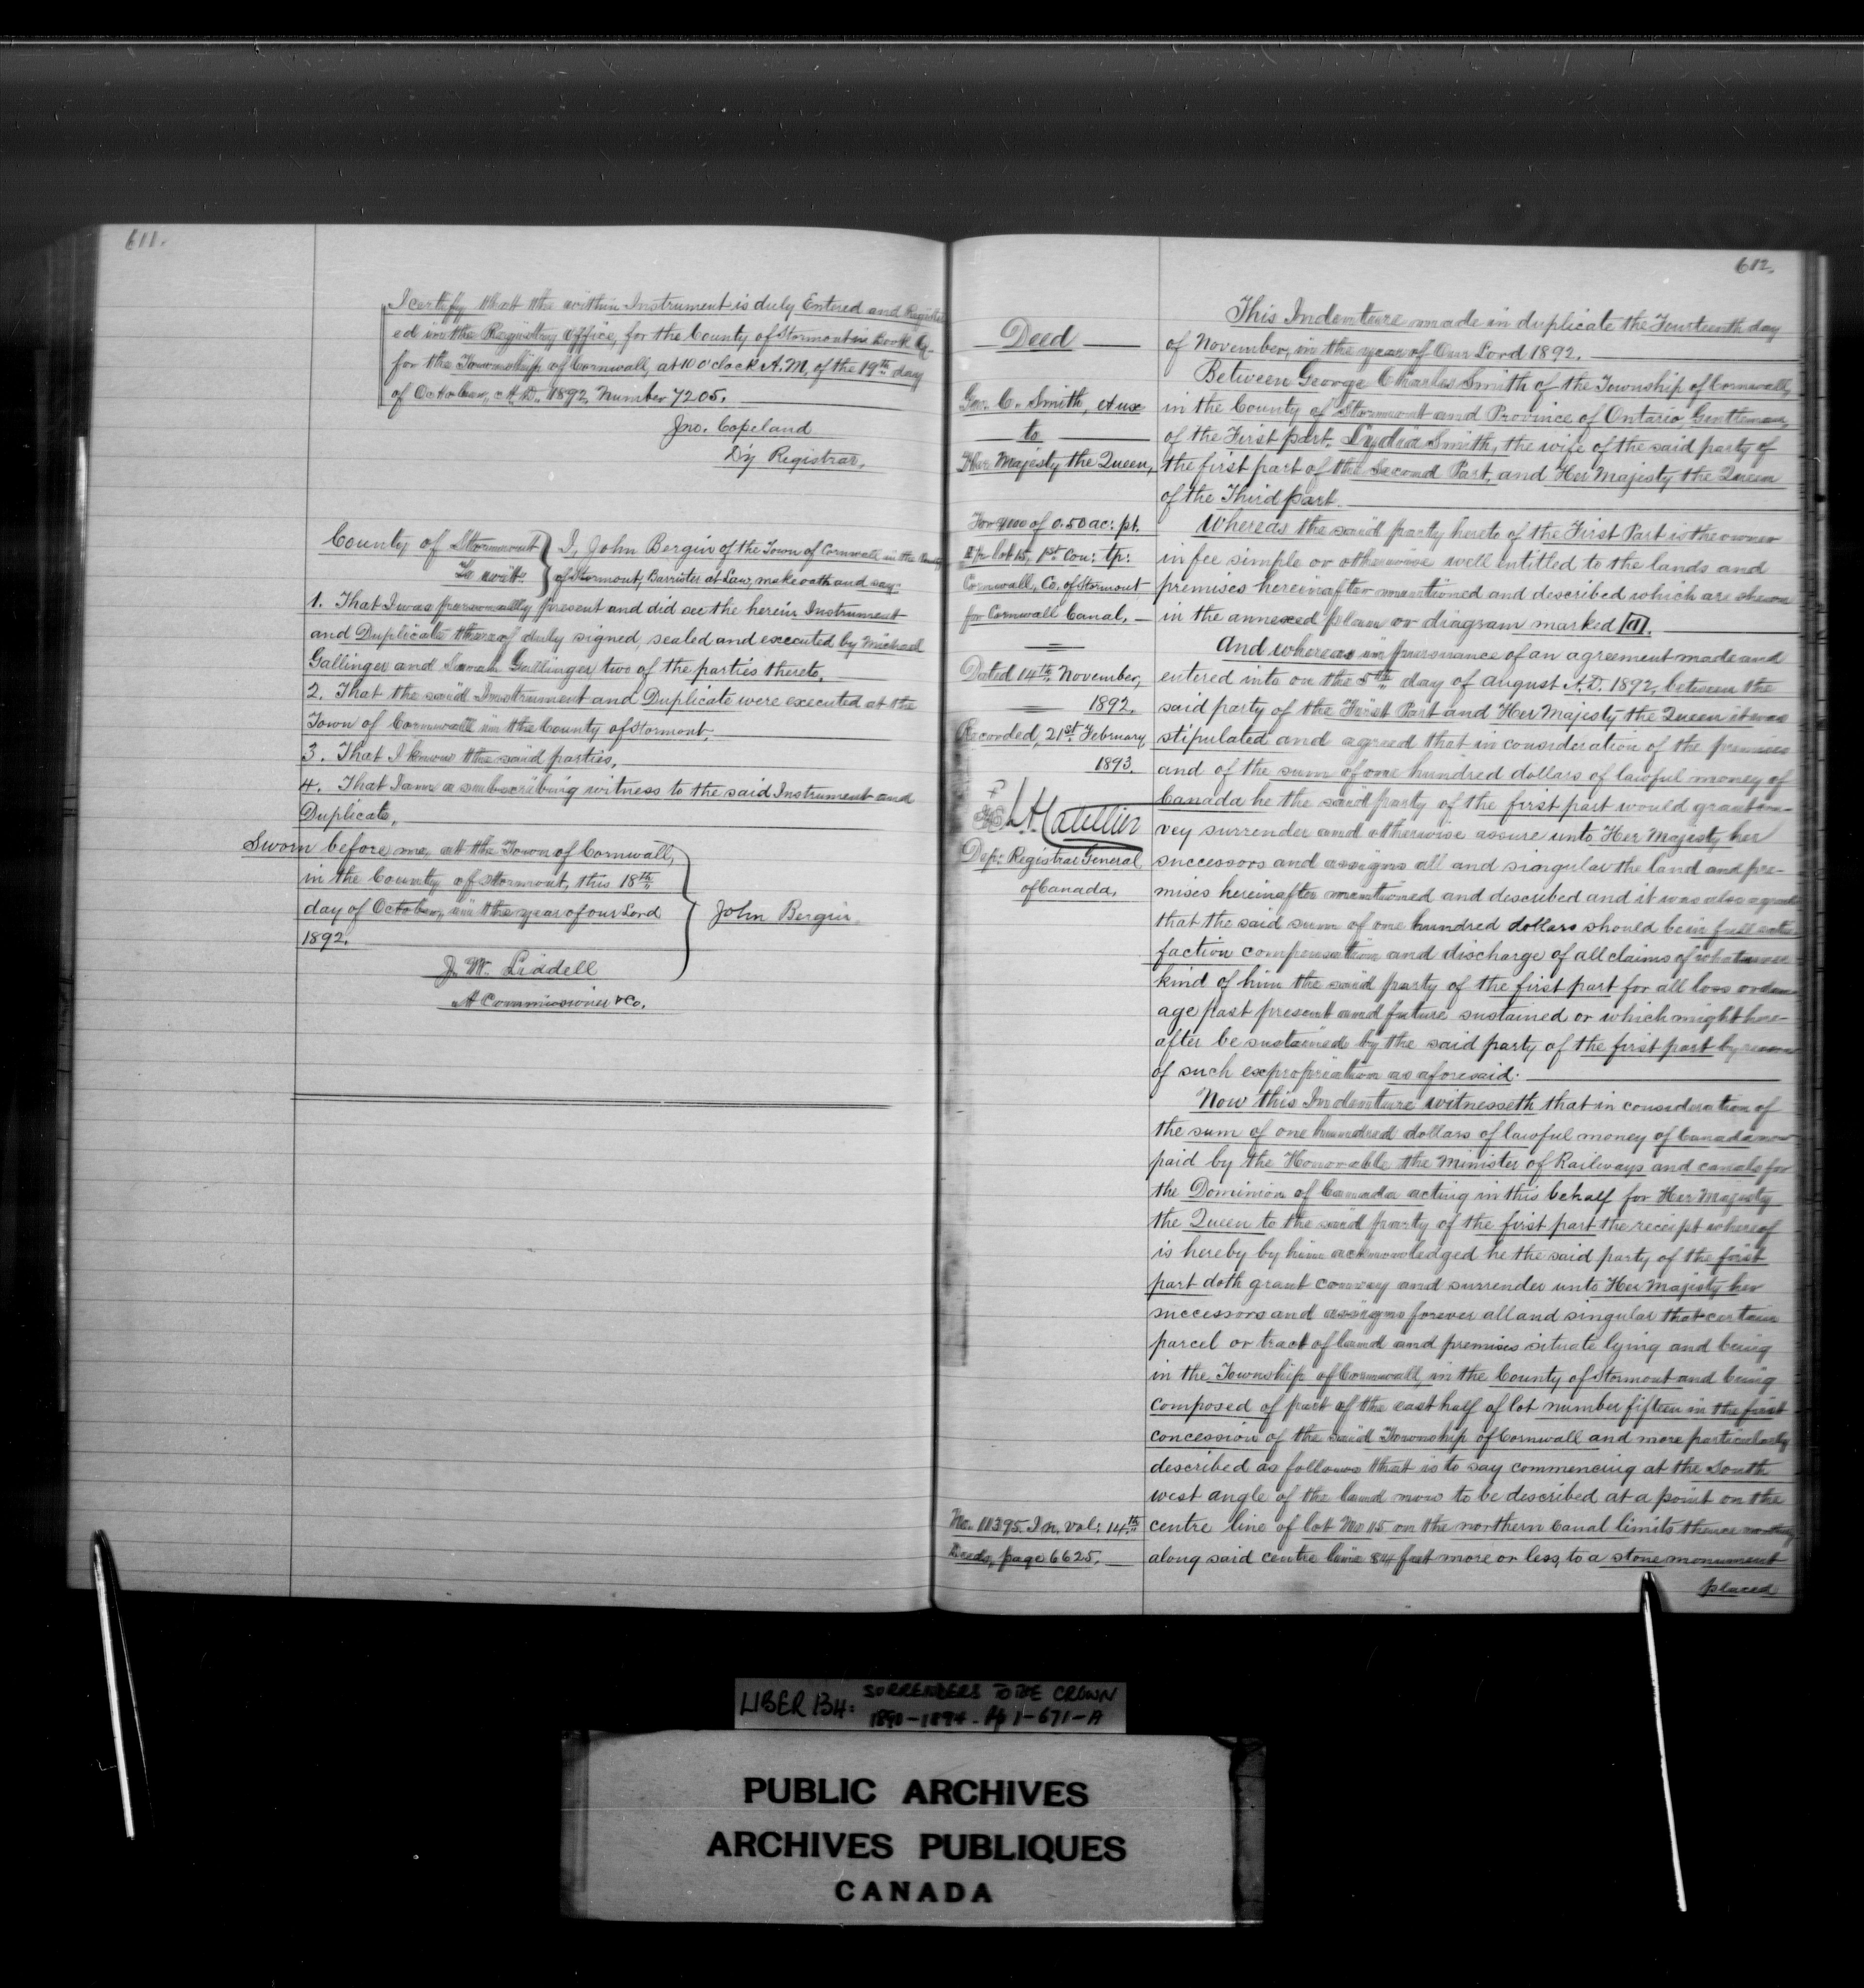 611.
I certify that the within Instrument is duly Entered and Register
ed in the Registry Office, for the County of Stormont in Book
for the Township of Cornwall, at 10 o'clock A.M, of the 19th day
of October, A.D. 1892, Number 7205.
Jno. Copeland
D'y Registrar.
County of Stormont
To wit:
I, John Bergin of the Town of Cornwall in the County
of Stormont, Barrister at Law, make oath and say:
1. That I was personally present and did see the herein Instrument
and Duplicate thereof duly signed, sealed and executed by Michael
Gallinger and Gallinger two of the parties thereto.
2. That the said Instrument and Duplicate were executed at the
Town of Cornwall in the County of Stormont.
3. That I know the said parties.
4. That I am a subscribing witness to the said Instrument and
Duplicate.
Sworn before me, at the Town of Cornwall,
in the County of Stormont, this 18th
day of October, in the year of our Lord
1892.
John Bergin.
J. W. Liddell
A Commissioner &Co.
612.
Deed
Geo. C. Smith, et ux
to
Her Majesty the Queen,
For $100 of 0.50 ac: pt.
E½ lot 15, 1st Con: tp:
Cornwall, Co. of Stormont
for Cornwall Canal.
Dated 14th November,
1892.
Recorded, 21st February,
1893.
L.A. Catellier
Dep: Registrar General
of Canada.
No. 11395. In. vol: 14th
Deeds, page 6625.
This Indenture made in duplicate the Fourteenth day
of November, in the year of Our Lord 1892.
Between George Charles Smith of the Township of Cornwall,
in the County of Stormont and Province of Ontario, Gentleman,
of the First part, Lydia Smith, the wife of the said party of
the first part of the Second Part, and Her Majesty the Queen
of the Third part.
Whereas the said party hereto of the First Part is the owner
in fee simple or otherwise well intitled to the lands and
premises hereinafter mentioned and described which are shewn
in the annexed plan or diagram marked [a].
And whereas in pursuance of an agreement made and
entered into on the 5th day of August A.D. 1892, between the
said party of the First Part and Her Majesty the Queen it was
stipulated and agreed that in consideration of the premises
and of the sum of one hundred dollars of lawful money of
Canada he the said party of the first part would grant con-
vey surrender and otherwise assure unto Her Majesty her
successors and assigns all and singular the land and pre-
mises hereinafter mentioned and described and it was also agreed
that the said sum of one hundred dollars should be in full satis
faction compensation and discharge of all claims of whatever
kind of him the said party of the first part for all loss or dam
age past present and future sustained or which might here-
after be sustained by the said party of the first part by reason
of such expropriation as aforesaid.
Now this Indenture witnesseth that in consideration of
the sum of one hundred dollars of lawful money of Canada now
paid by the Honorable the Minister of Railways and canals for
the Dominion of Canada acting in this behalf for Her Majesty
the Queen to the said party of the first part the receipt whereof
is hereby by him acknowledged he the said party of the first
part doth grant convey and surrender unto Her Majesty her
successors and assigns forever all and singular that certain
parcel or tract of land and premises situate lying and being
in the Township of Cornwall, in the County of Stormont and being
composed of part of the east half of lot number fifteen in the first
concession of the said Township of Cornwall and more particularly
described as follows that is to say commencing at the South
west angle of the land now to be described at a point on the
centre line of lot No 15 on the northern canal limits thence northerly
along said centre line 84 feet more or less, to a stone monument
placed
LIBER 134: SURRENDERS TO THE CROWN
1890-1894. Pp 1-671-A
PUBLIC ARCHIVES
ARCHIVES PUBLIQUES
CANADA